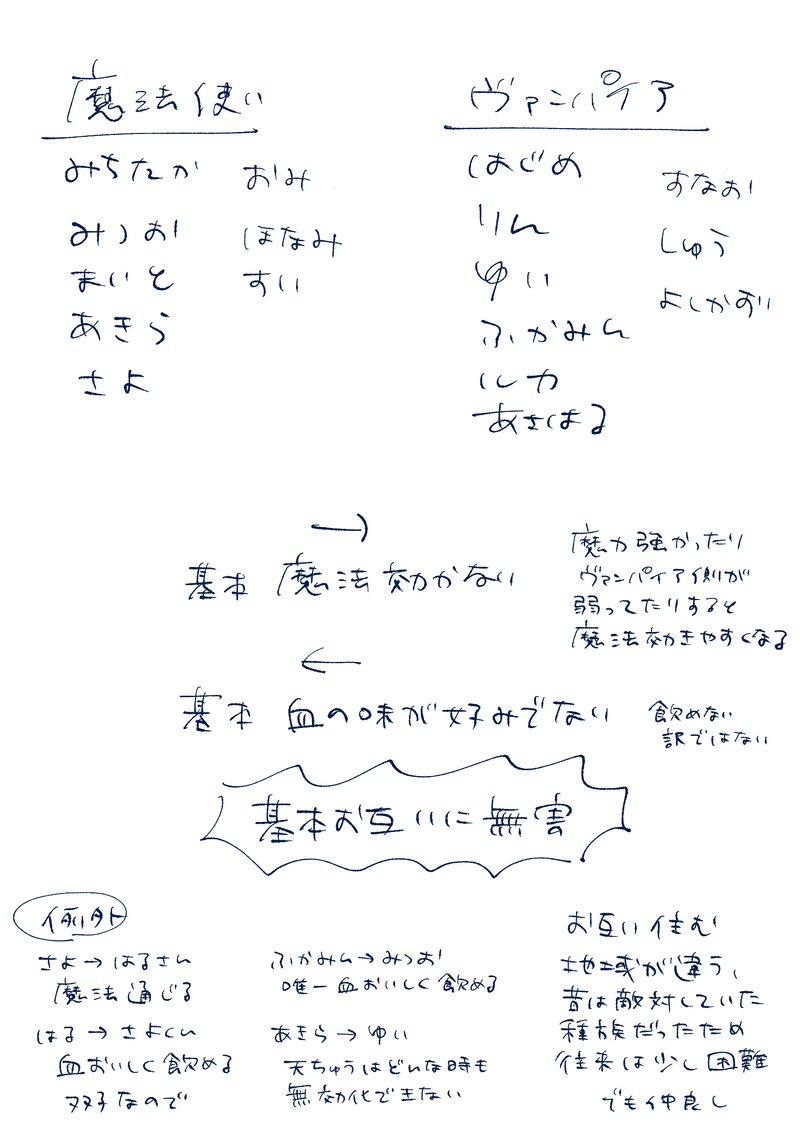 魔法使い
みちたか
みつお
まいと
あきら
さよ
おみ
ほなみ
すい
ヴァンパイア
はじめ
りん
ゆい
ふかみん
ルカ
あさはる
すなお
しゅう
よしかず
→
基本 魔法効かない
魔力強かったり
ヴァンパイア側が
弱ってたりすると
魔法効きやすくなる
←
基本 血の味が好みでない
飲めない
訳ではない
基本お互いに無害
例外
さよ→はるさん
魔法通じる
はる→さよくん
血おいしく飲める
双子なので
ふかみん→みつお
唯一血おいしく飲める
あきら→ゆい
天ちゅうはどんな時も
無効化できない
お互い住む
地域が違う、
昔は敵対していた
種族だったため
往来は少し困難
でも仲良し